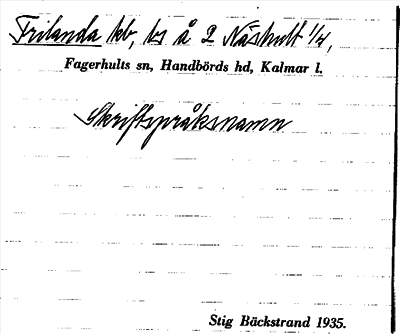 Frilanda hb, by å 2 Näshult 1/4,
Fagerhults sn, Handbörds hd, Kalmar l.
Skriftspråksnamn
Stig Bäckstrand 1935.